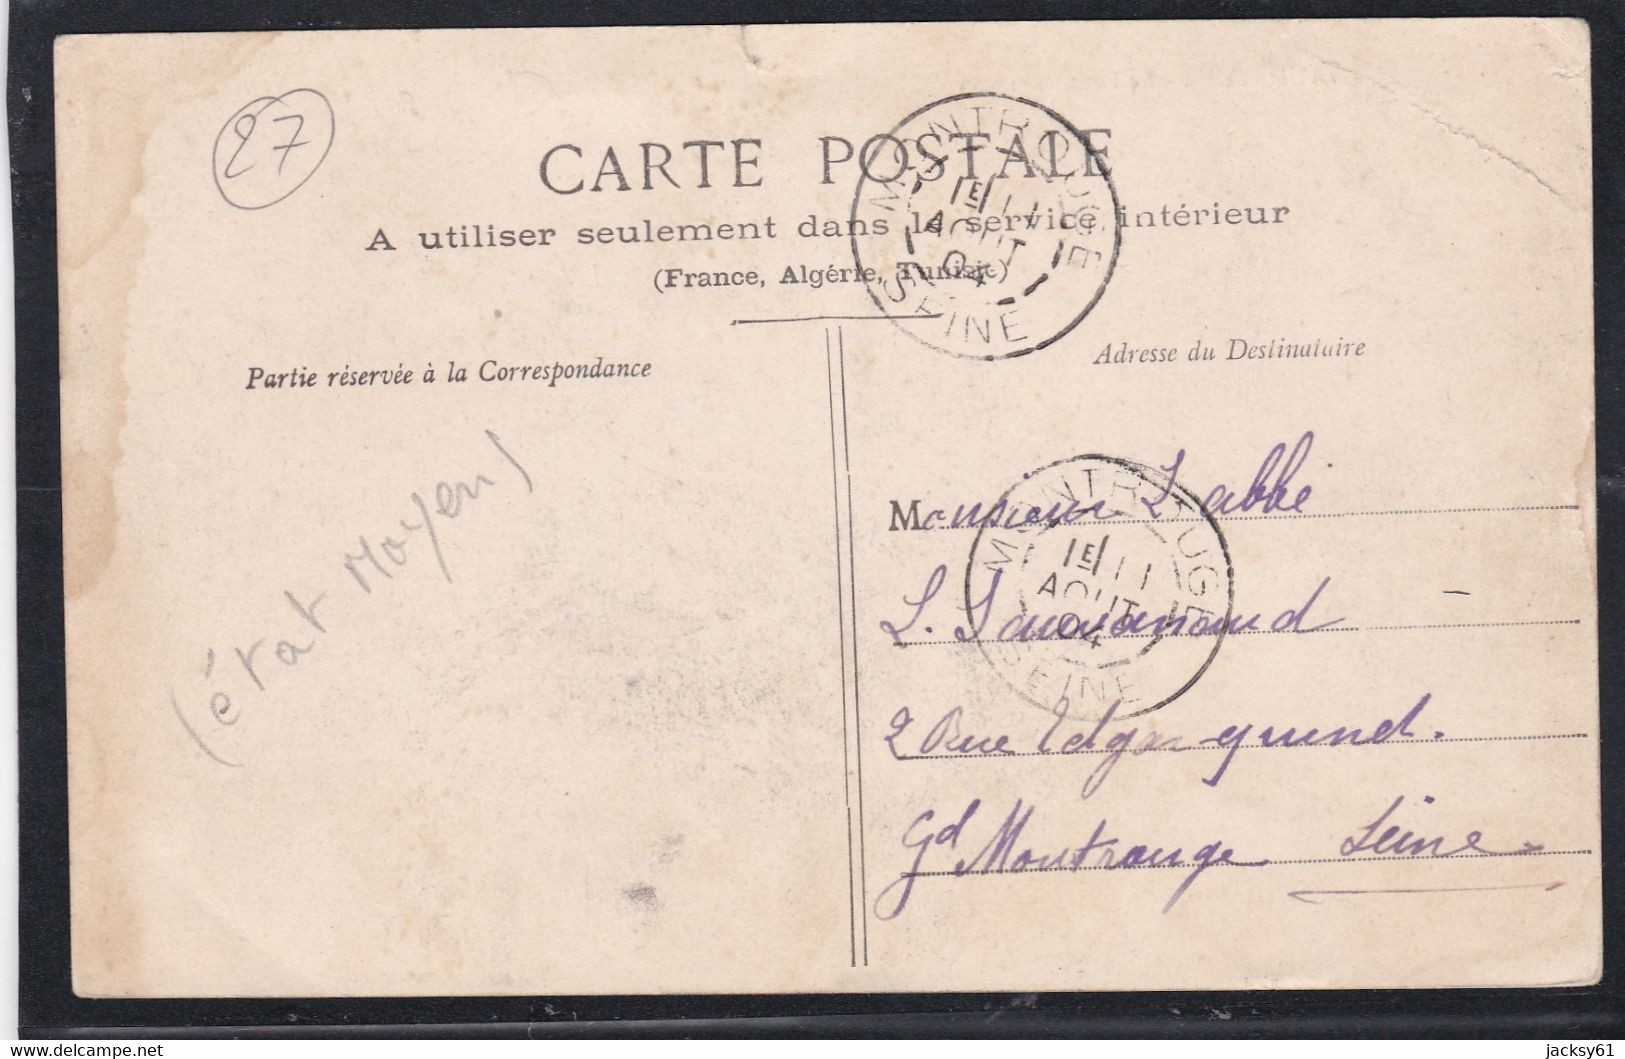 27
CARTE POSTALE
A utiliser seulement dans le service intérieur
(France, Algérie, Tunisie)
MONTROUGE
E
11
AOUT
04
SEINE
Partie réservée à la Correspondance
Adresse du Destinataire
(état Moyen)
Monsieur Labbé
MONTROUGE
E
11
AOUT
04
SEINE
L.
2 Rue Edgar quinet.
Gd Montrouge Seine
www.delcampe.net
jacksy61